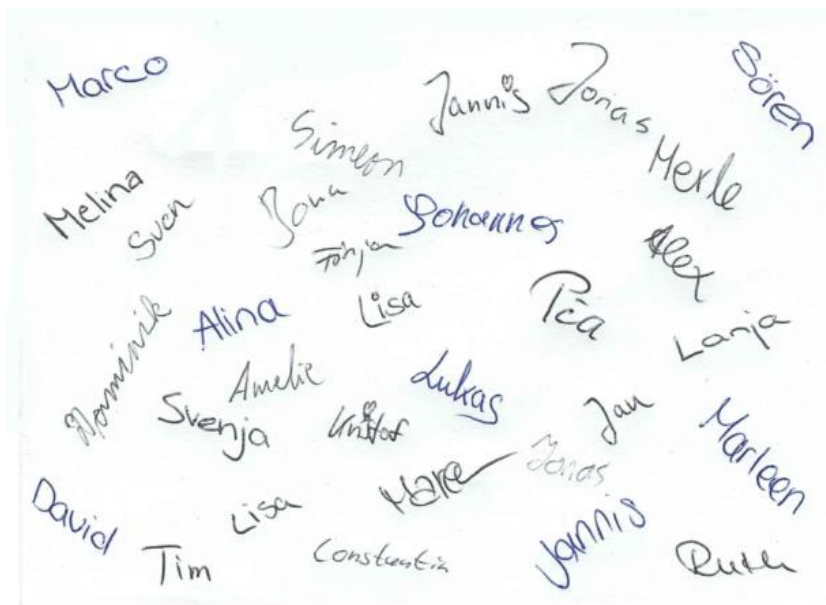 Marco
Jannis
Jonas
Sören
Simeon
Merle
Melina
Sven
Jona
Johannes
Alex
Alina
Lisa
Pia
Lanja
Dominik
Amelie
Lukas
Svenja
Kristof
Jan
Marleen
Jonas
David
Lisa
Tim
Constantin
Jannis
Ruth